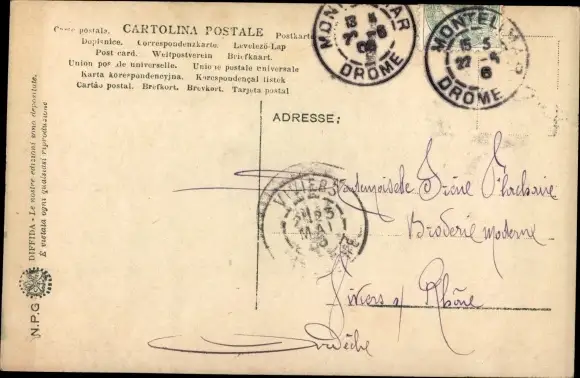 Carte postale. CARTOLINA POSTALE Postkarte
Dopisnice. Correspondenzkarte. Levelező-Lap
Post card. Weltpostverein Briefkaart.
Union postale universelle. Unione postale universale
Karta korespondencyjna. Korespondenčni listek
Cartão postal. Brefkort. Brevkort. Tarjeta postal
MONTELIMAR
DROME
MONTELIMAR
DROME
ADRESSE:
Mademoiselle Irène
Broderie moderne
Viviers s/ Rhône
Ardèche
VIVIERS
MAI
DIFFIDA - Le nostre edizioni sono depositate.
È vietata ogni qualsiasi riproduzione
N.P.G.